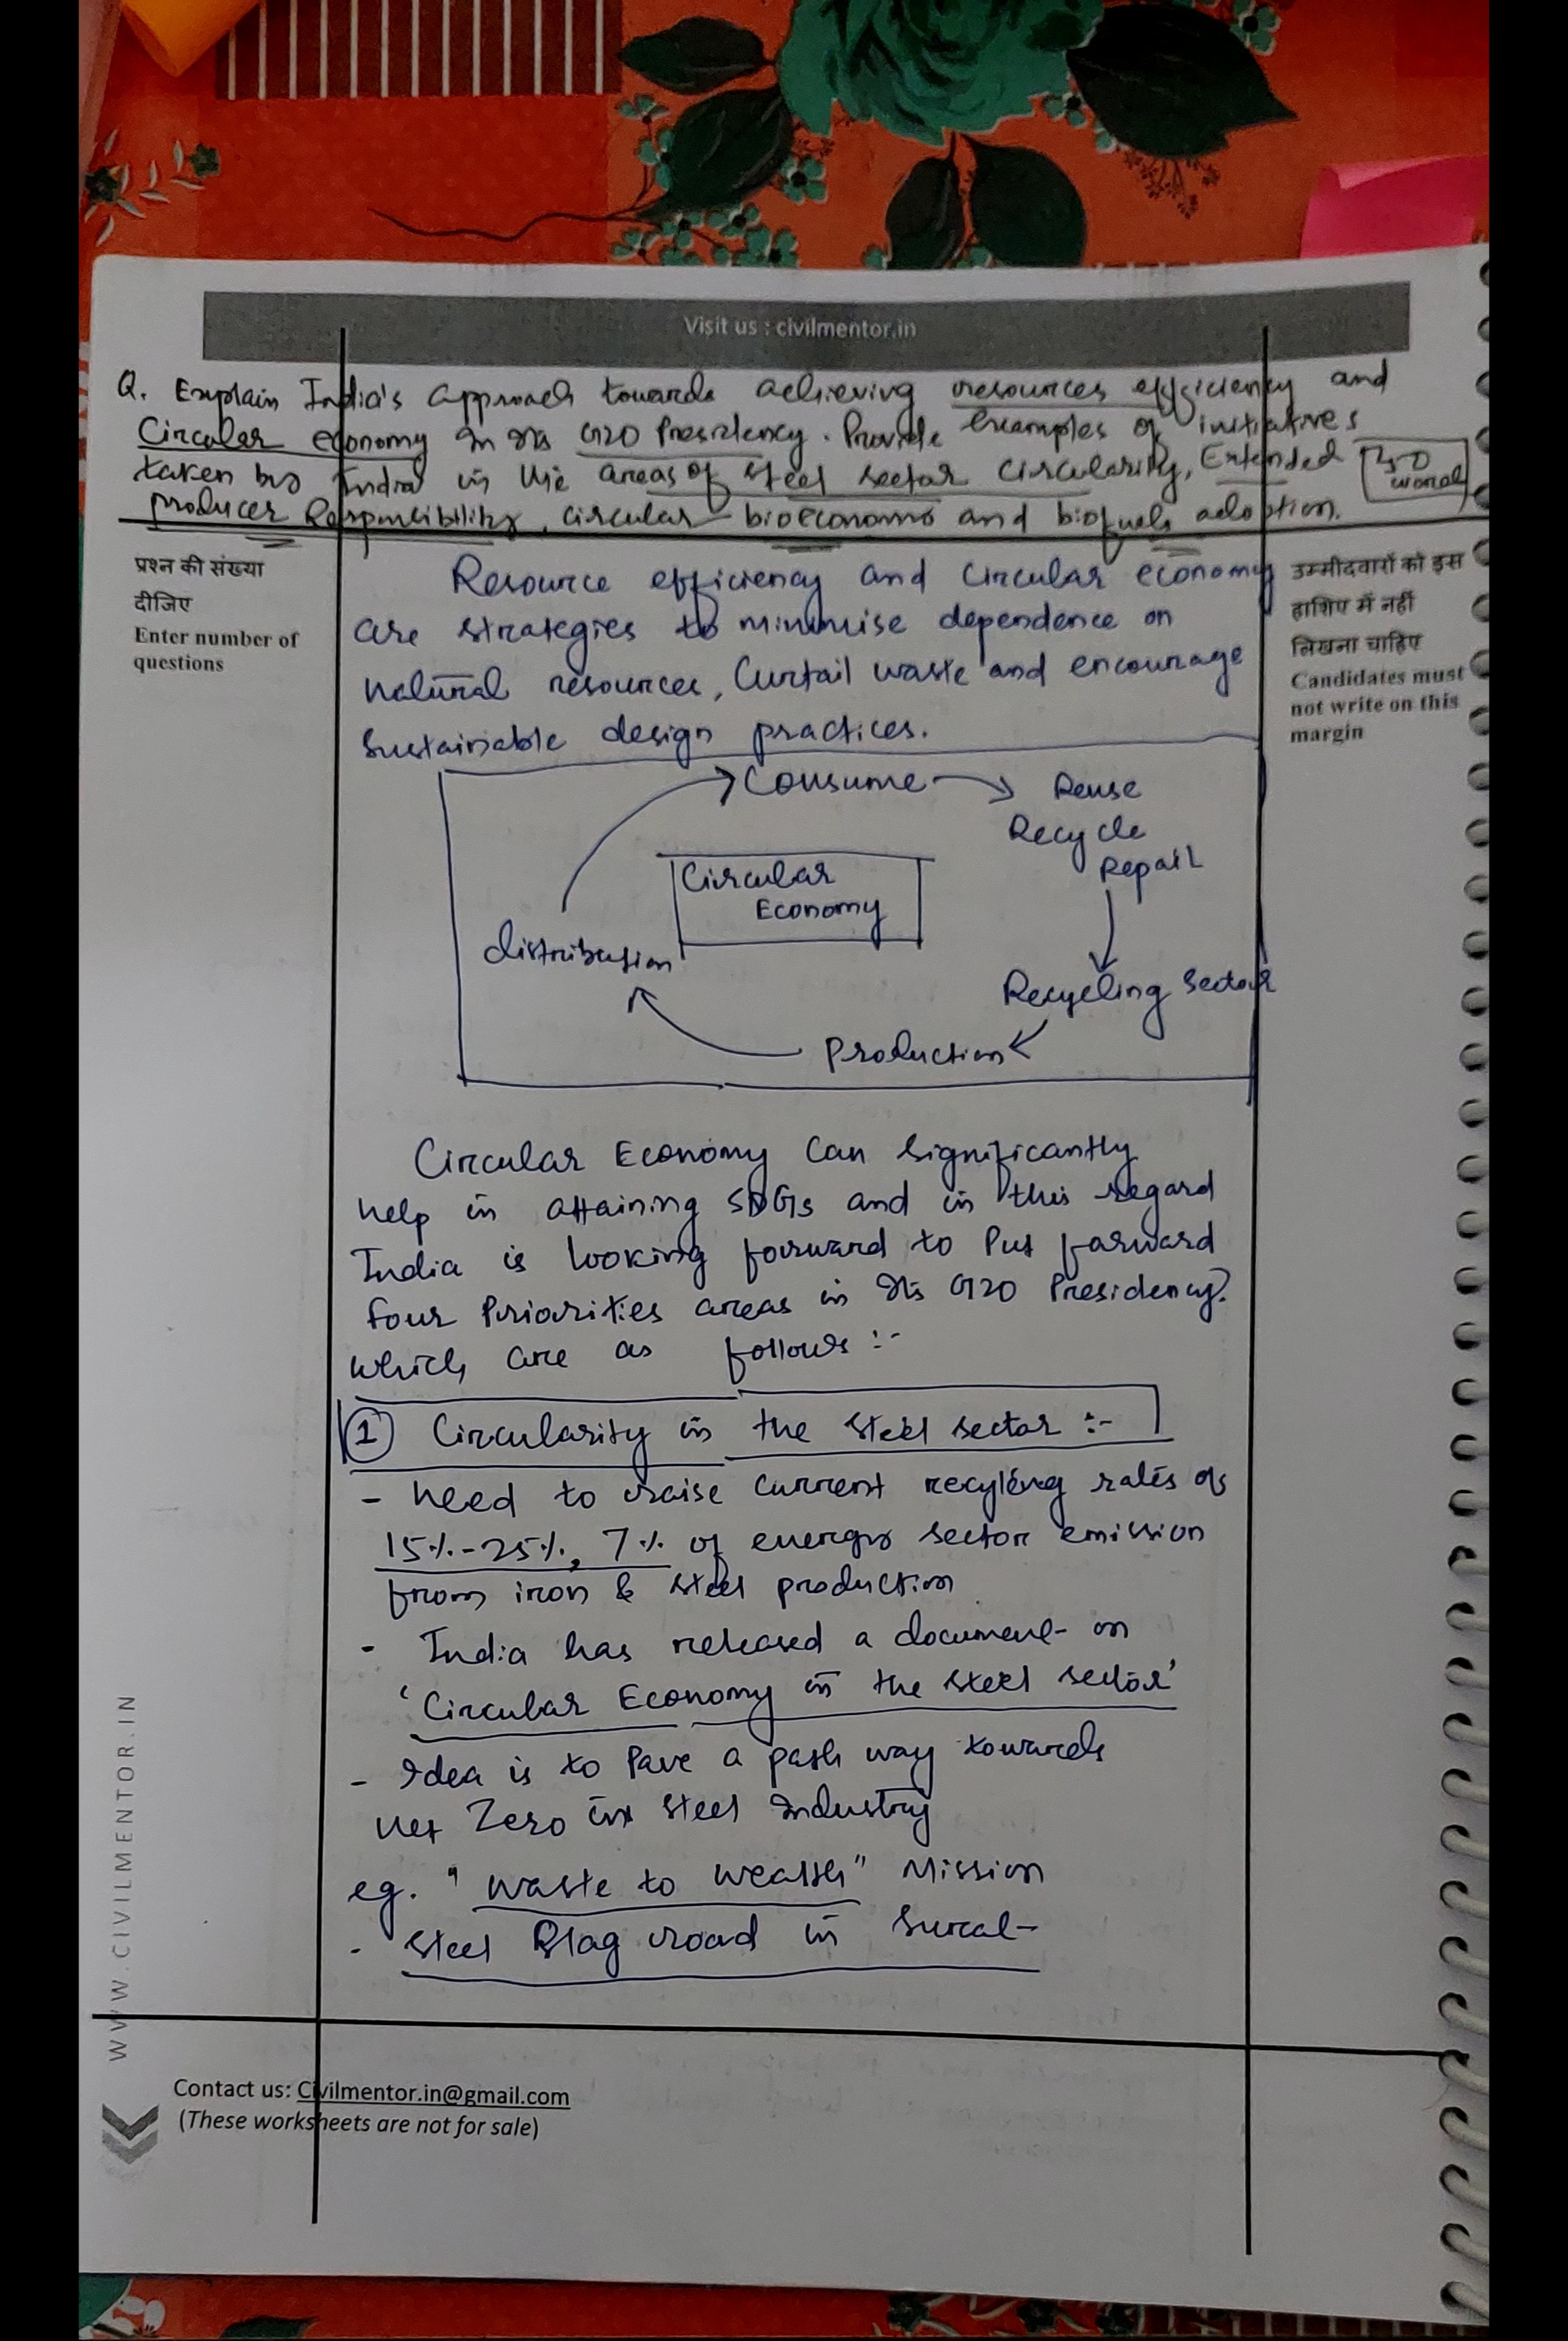 Visit us : civilmentor.in
Q. Explain India's approach towards achieving resources efficiency and
Circular economy in its G20 Presidency. Provide examples of initiatives
taken by India in the areas of steel sector circularity, Extended
producer Responsibility, circular bioeconomy and biofuels adoption.
250
words
प्रश्न की संख्या
दीजिए
Enter number of
questions
उम्मीदवारों को इस
हाशिए में नहीं
लिखना चाहिए
Candidates must
not write on this
margin
Resource efficiency and circular economy
are strategies to minimise dependence on
natural resources, Curtail waste and encourage
Sustainable design practices.
Consume
Reuse
Recycle
Repair
Circular
Economy
distribution
Recycling sector
Production
Circular Economy can significantly
help in attaining SDGs and in this regard
India is looking forward to Put forward
four Priorities areas in its G20 Presidency.
which are as follows :-
1 Circularity in the steel sector :-
- need to raise current recyling rates of
15%-25%, 7% of energy sector emission
from iron & steel production
- India has released a document on
'Circular Economy in the steel sector'
- Idea is to Pave a path way towards
Net Zero in steel industry
eg. "Waste to Wealth" Mission
- Steel Slag road in Surat
WWW.CIVILMENTOR.IN
Contact us: Civilmentor.in@gmail.com
(These worksheets are not for sale)